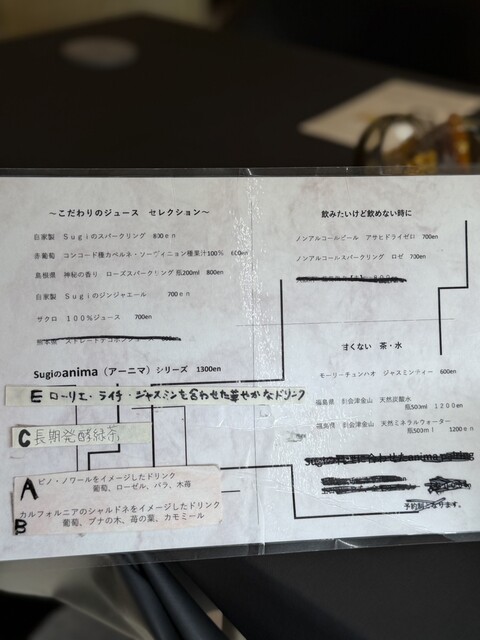 ～こだわりのジュース セレクション～
自家製 Ｓｕｇｉのスパークリング 800ｅｎ
赤葡萄 コンコード種カベルネ・ソーヴィニョン種果汁100％ 600en
島根県 神秘の香り ローズスパークリング 瓶200ml 800en
自家製 Ｓｕｇｉのジンジャエール 700ｅｎ
ザクロ １００％ジュース 700en
熊本県 ストレートデコポンジュース
Sugiのanima（アーニマ）シリーズ 1300en
E ローリエ・ライチ・ジャスミンを合わせた華やかなドリンク
C 長期発酵緑茶
A ピノ・ノワールをイメージしたドリンク
葡萄、ローゼル、バラ、木苺
カルフォルニアのシャルドネをイメージしたドリンク
B 葡萄、ブナの木、苺の葉、カモミール
飲みたいけど飲めない時に
ノンアルコールビール アサヒドライゼロ 700en
ノンアルコールスパークリング ロゼ 700en
甘くない 茶・水
モーリーチュンハオ ジャスミンティー 600en
福島県 奥会津金山 天然炭酸水
瓶503ml １２００en
福島県 奥会津金山 天然ミネラルウォーター
瓶500ｍｌ 1200ｅｎ
予約制となります。